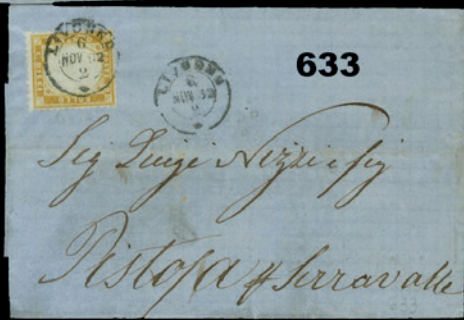 LIVORNO
6
NOV 62
2
LIVORNO
6
NOV 62
2
633
Sig Luigi Nezzi e fig
Pistoja p Serravalle
633